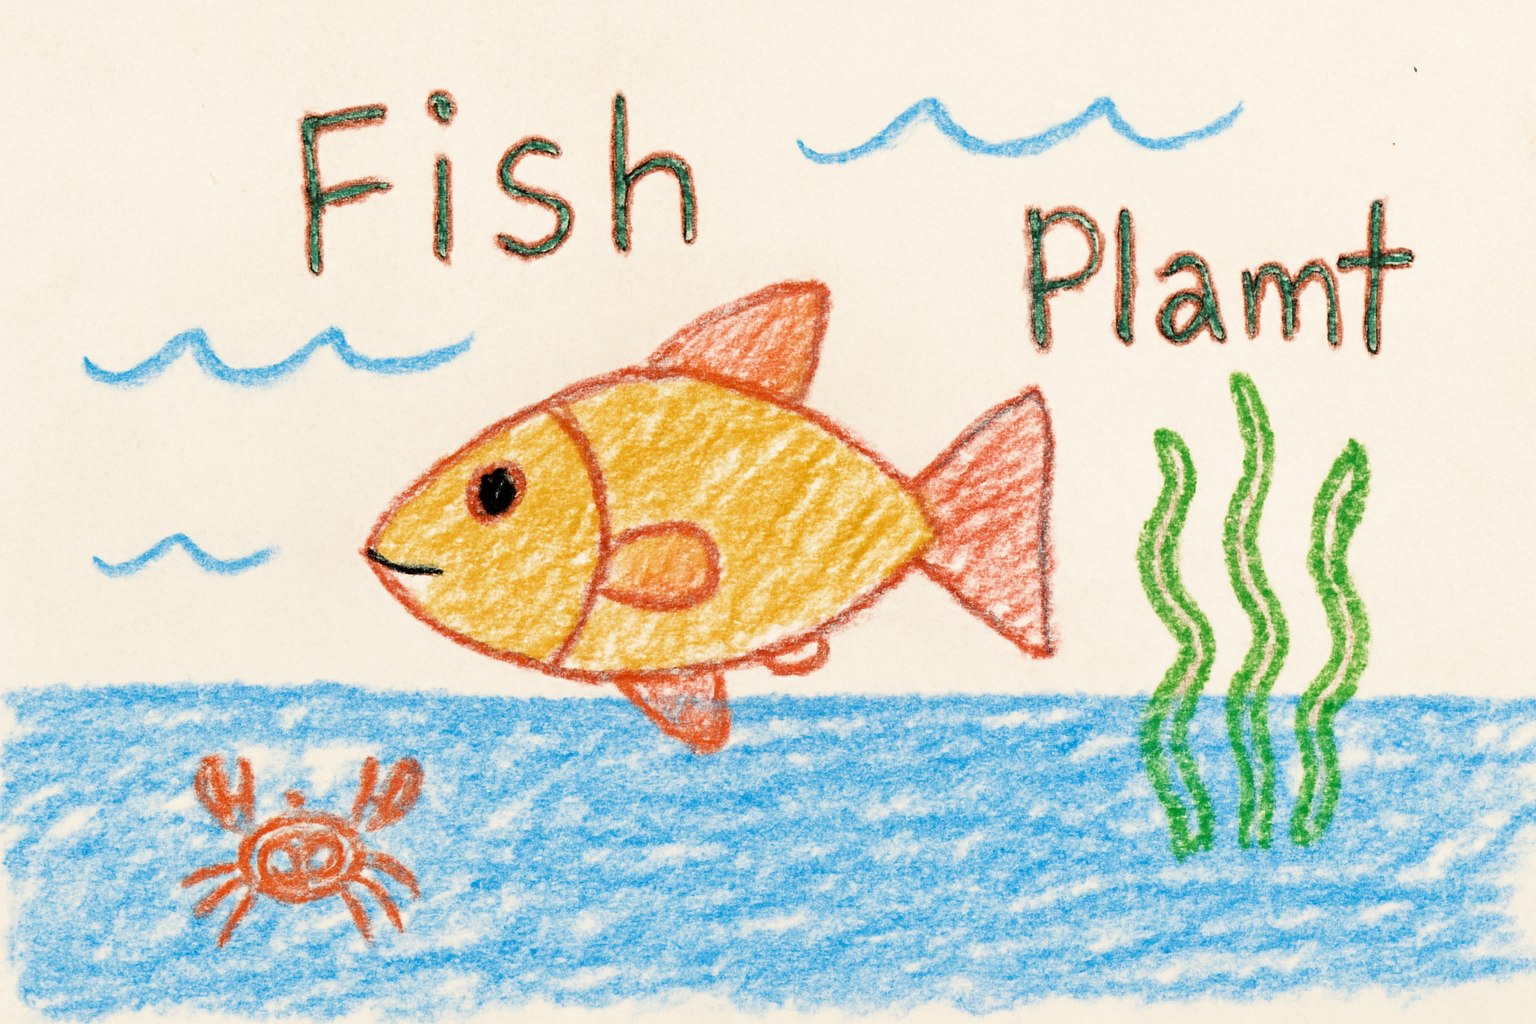 Fish
Plamt